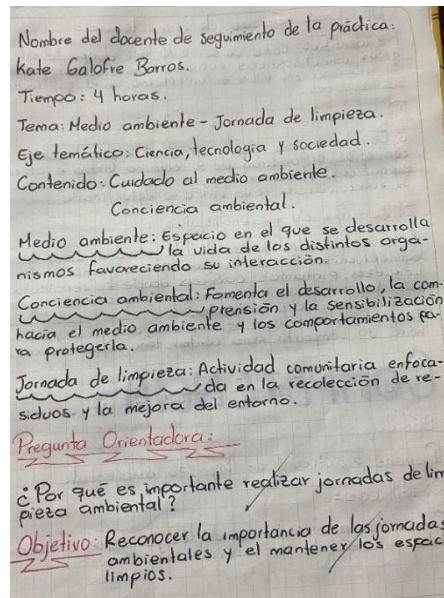 Nombre del docente de seguimiento de la práctica:
Kate Galofre Barros.
Tiempo: 4 horas.
Tema: Medio ambiente - Jornada de limpieza.
Eje temático: Ciencia, tecnología y sociedad.
Contenido: Cuidado al medio ambiente.
Conciencia ambiental.
Medio ambiente: Espacio en el que se desarrolla
la vida de los distintos orga-
nismos favoreciendo su interacción.
Conciencia ambiental: Fomenta el desarrollo, la com-
prensión y la sensibilización
hacia el medio ambiente y los comportamientos pa-
ra protegerla.
Jornada de limpieza: Actividad comunitaria enfoca-
da en la recolección de re-
siduos y la mejora del entorno.
Pregunta Orientadora:
¿Por qué es importante realizar jornadas de lim
pieza ambiental?
Objetivo: Reconocer la importancia de las jornadas
ambientales y el mantener los espac
limpios.